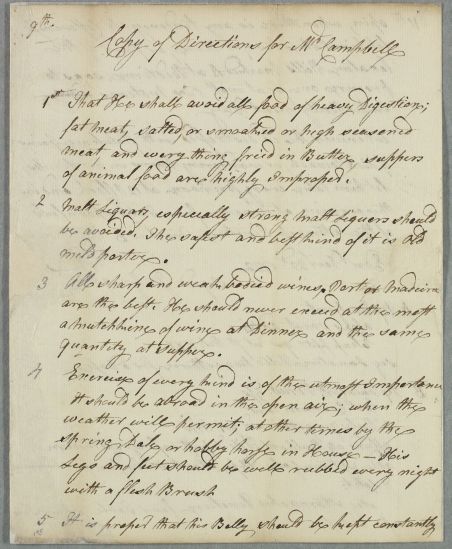 9th.
Copy of Directions for Mr Campbell
1st That He shall avoid all food of heavy Digestion;
fat meat, salted, or smoaked or high seasoned
meat and every thing fried in Butter, suppers
of animal food are highly Improper.
2 Malt Liquors, especially strong Malt Liquors should
be avoided. The safest and best kind of it is Old
mild porter.
3 All sharp and weak bodied wines. Port or Madeira
are the best. He should never exceed at the most
a mutchkine of wine at Dinner and the same
quantity at supper.
4 Exercise of every kind is of the utmost Importance
It should be abroad in the open air; when the
weather will permit; at other times by the
spring, or hobby horse in House — His
Legs and feet should be well rubbed every night
with a flesh Brush
5 It is proper that his Belly should be kept constantly